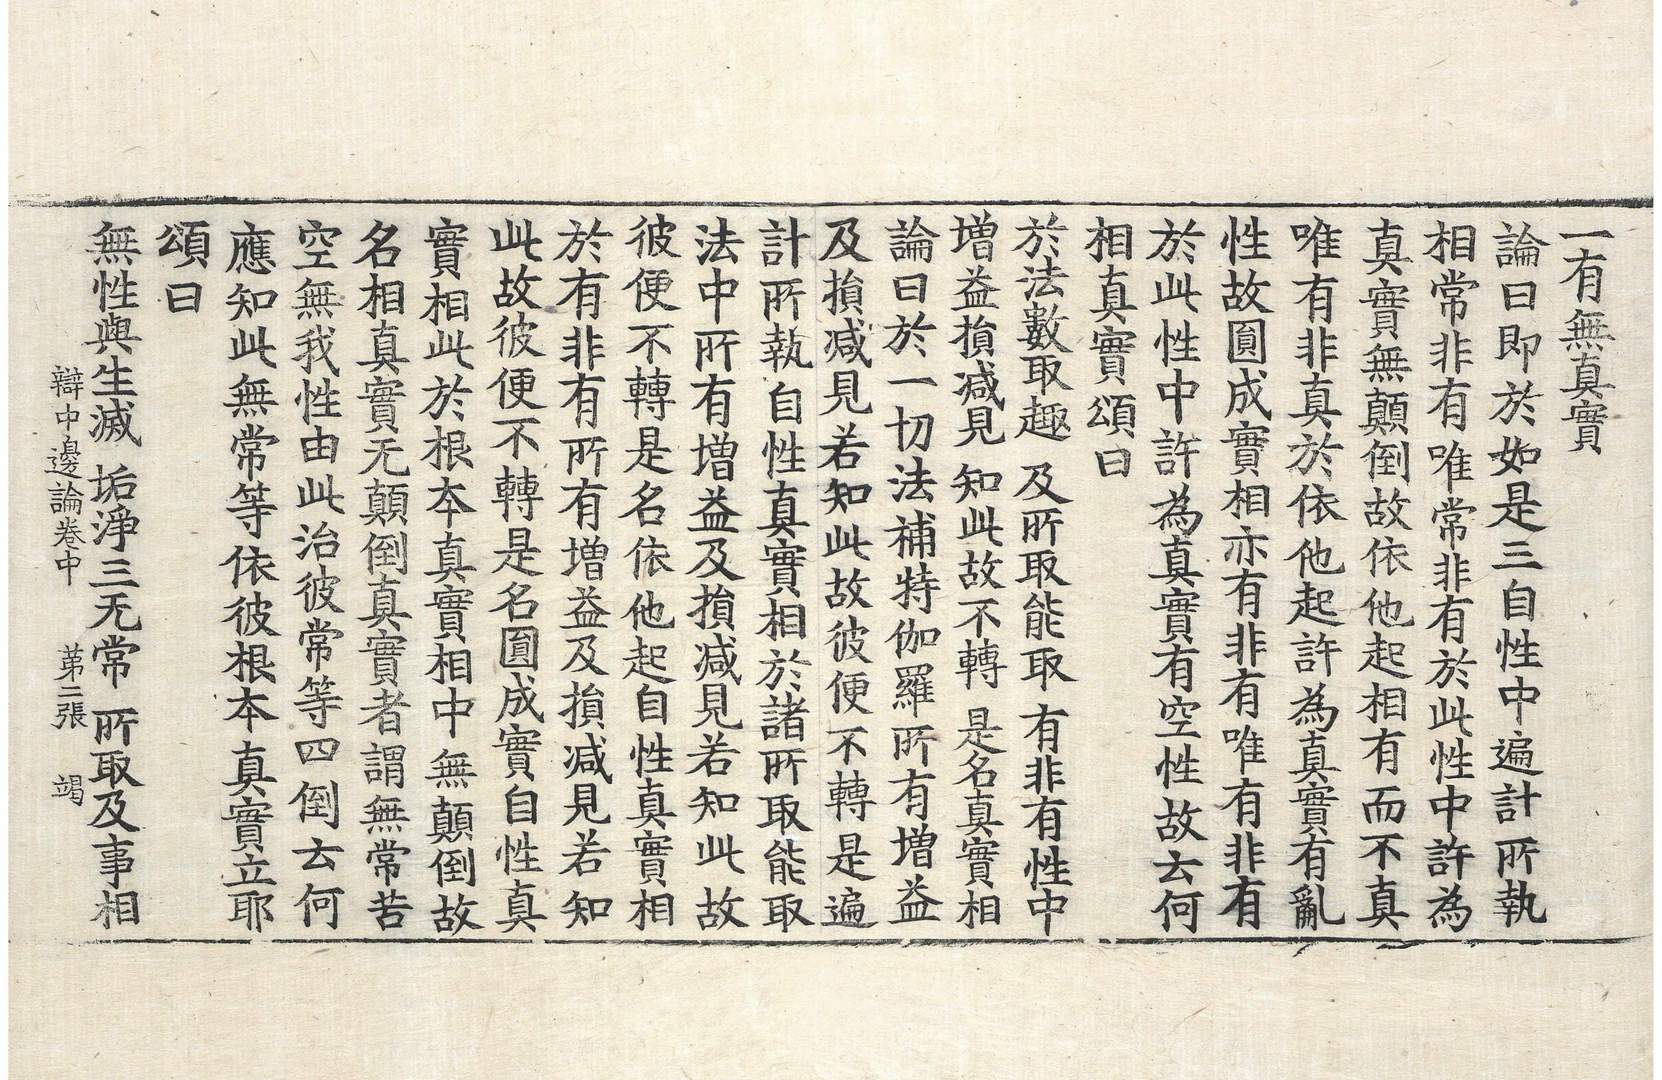 一有無真實
論曰即於如是三自性中遍計所執
相常非有唯常非有於此性中許為
真實無顛倒故依他起相有而不真
唯有非真於依他起許為真實有亂
性故圓成實相亦有非有唯有非有
於此性中許為真實有空性故去何
相真實頌曰
於法數取趣 及所取能取 有非有性中
增益損减見 知此故不轉 是名真實相
論曰於一切法補特伽羅所有增益
及損减見若知此故彼便不轉是遍
計所執自性真實相於諸所取能取
法中所有增益及損减見若知此故
彼便不轉是名依他起自性真實相
於有非有所有增益及損减見若知
此故彼便不轉是名圓成實自性真
實相此於根本真實相中無顛倒故
名相真實无顛倒真實者謂無常苦
空無我性由此治彼常等四倒去何
應知此無常等依彼根本真實立耶
頌曰
無性與生滅 垢淨三无常 所取及事相
辯中邊論卷中 苐二張 竭